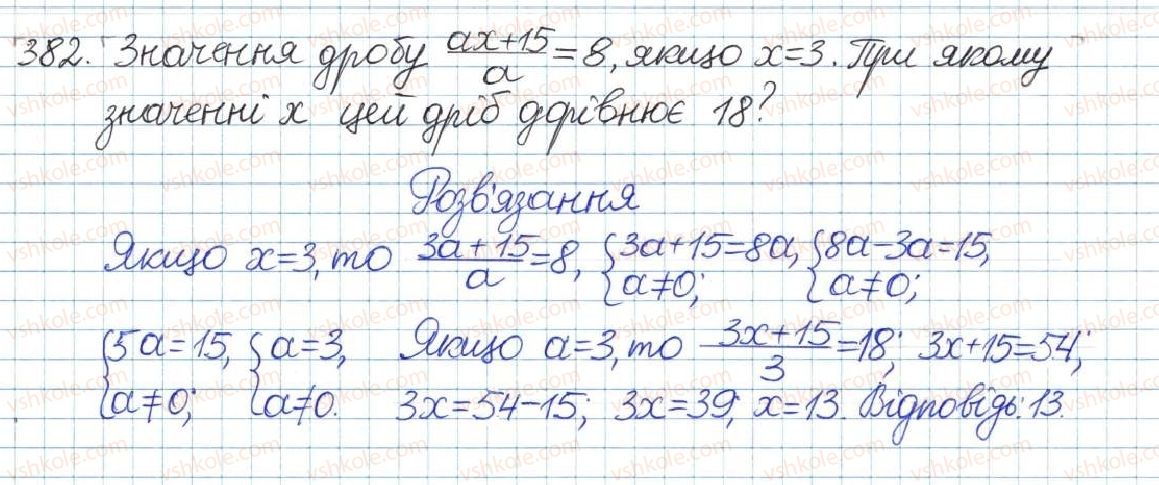 382. Значення дробу (ax+15)/a = 8, якщо x=3. При якому
значенні x цей дріб дорівнює 18?
Розв'язання
Якщо x=3, то (3a+15)/a = 8, {3a+15=8a, a≠0; {8a-3a=15, a≠0;
{5a=15, a≠0; {a=3, a≠0. Якщо a=3, то (3x+15)/3 = 18; 3x+15=54;
3x=54-15; 3x=39; x=13. Відповідь: 13.